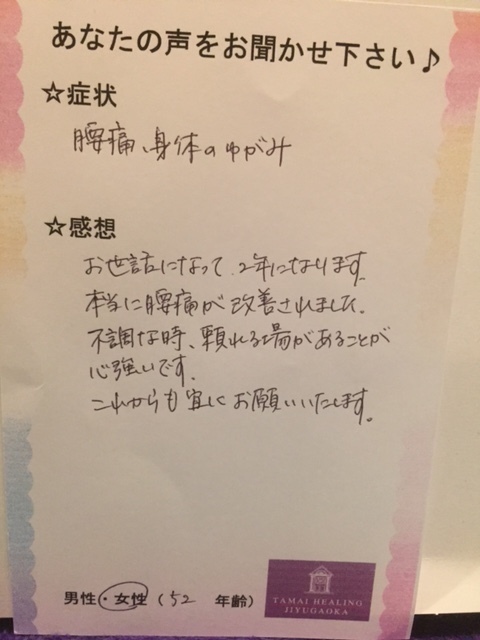 あなたの声をお聞かせ下さい♪
☆症状
腰痛、身体のゆがみ
☆感想
お世話になって、2年になります。
本当に腰痛が改善されました。
不調な時、頼れる場があることが
心強いです。
これからも宜しくお願いいたします。
男性・女性(52 年齢)
TAMAI HEALING
JIYUGAOKA